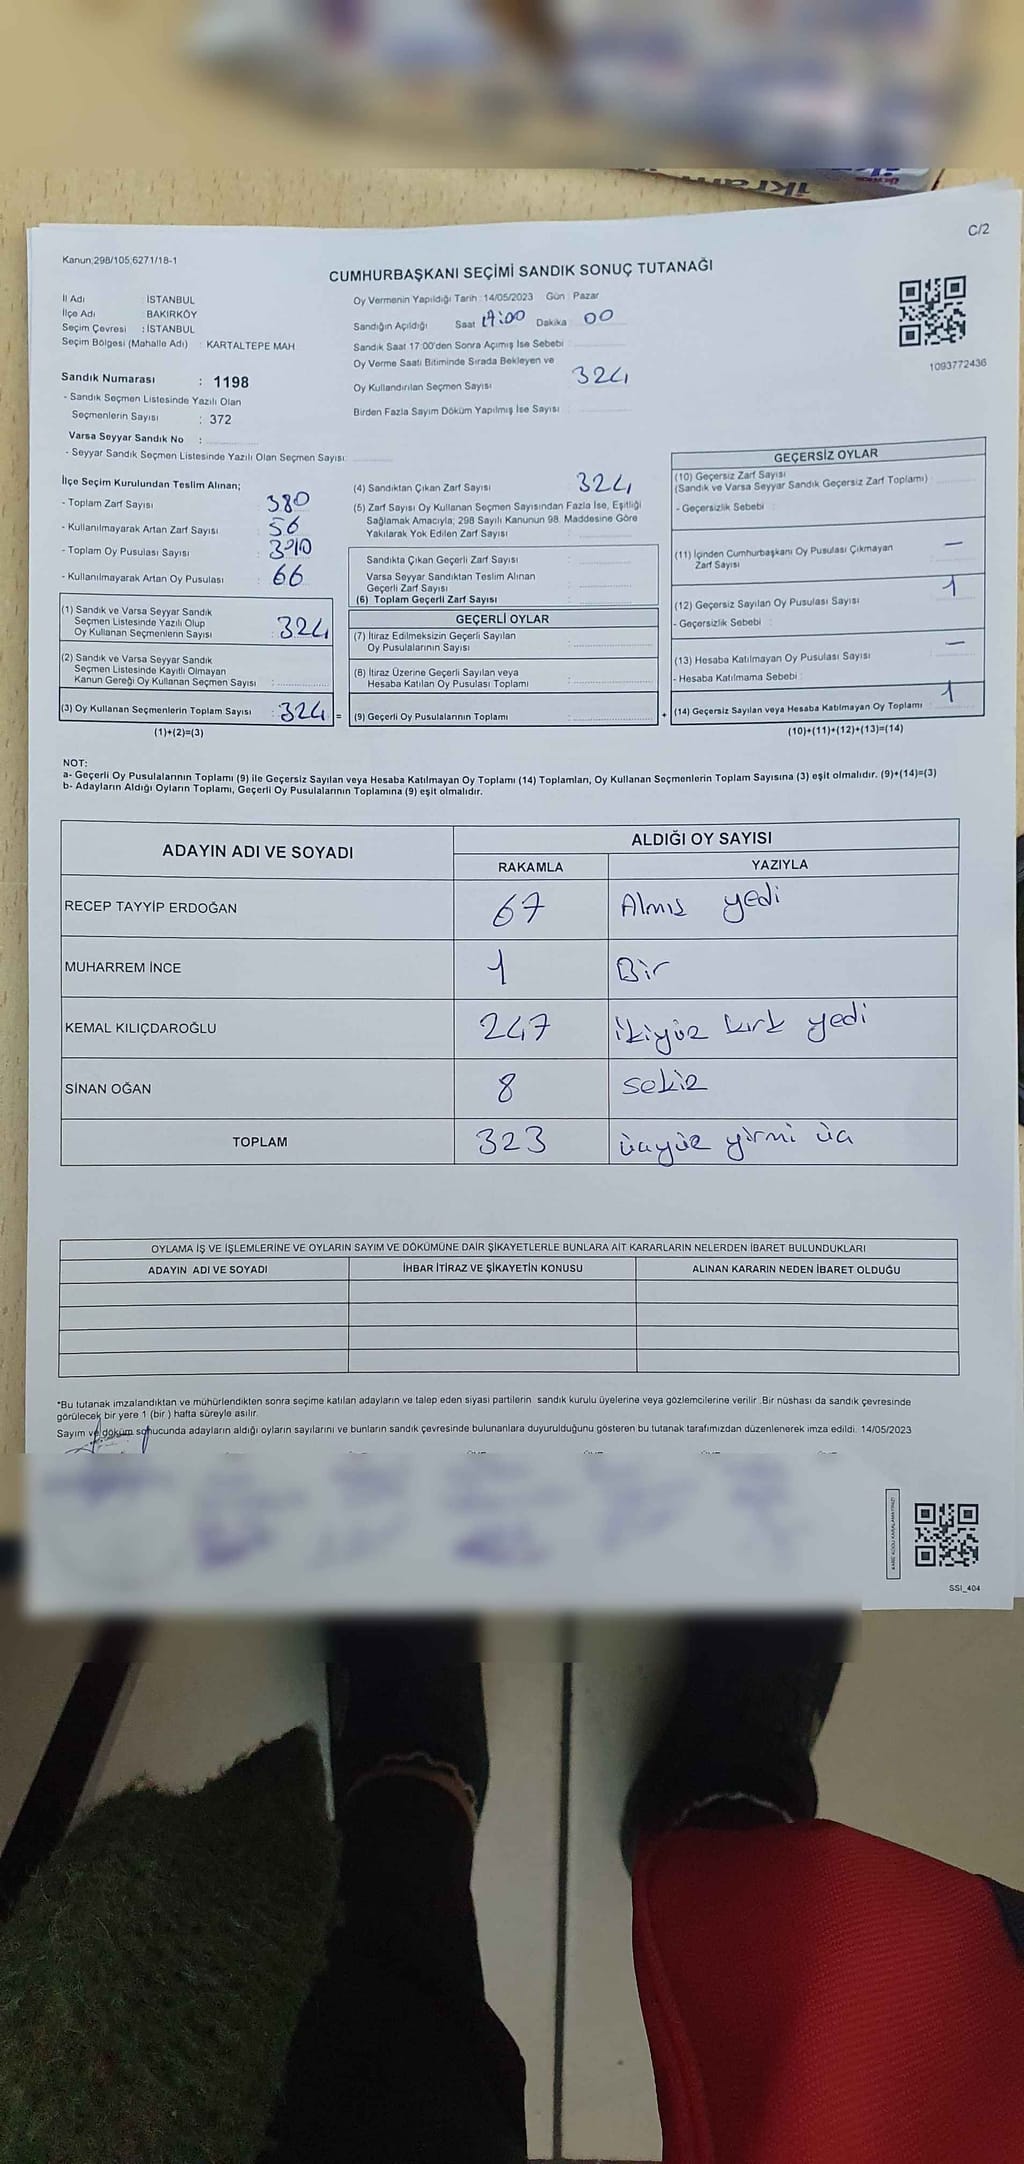 ikram
C/2
Kanun:298/105,6271/18-1
CUMHURBAŞKANI SEÇİMİ SANDIK SONUÇ TUTANAĞI
İl Adı : İSTANBUL
İlçe Adı : BAKIRKÖY
Seçim Çevresi : İSTANBUL
Seçim Bölgesi (Mahalle Adı) : KARTALTEPE MAH
Oy Vermenin Yapıldığı Tarih : 14/05/2023 Gün : Pazar
Sandığın Açıldığı Saat 17:00 Dakika 00
Sandık Saat 17:00'den Sonra Açımış İse Sebebi :
Oy Verme Saati Bitiminde Sırada Bekleyen ve
Oy Kullandırılan Seçmen Sayısı 324
Birden Fazla Sayım Döküm Yapılmış İse Sayısı :
1093772436
Sandık Numarası : 1198
- Sandık Seçmen Listesinde Yazılı Olan
Seçmenlerin Sayısı : 372
Varsa Seyyar Sandık No :
- Seyyar Sandık Seçmen Listesinde Yazılı Olan Seçmen Sayısı:
İlçe Seçim Kurulundan Teslim Alınan;
- Toplam Zarf Sayısı : 380
- Kullanılmayarak Artan Zarf Sayısı : 56
- Toplam Oy Pusulası Sayısı : 390
- Kullanılmayarak Artan Oy Pusulası : 66
(1) Sandık ve Varsa Seyyar Sandık
Seçmen Listesinde Yazılı Olup
Oy Kullanan Seçmenlerin Sayısı : 324
(2) Sandık ve Varsa Seyyar Sandık
Seçmen Listesinde Kayıtlı Olmayan
Kanun Gereği Oy Kullanan Seçmen Sayısı :
(3) Oy Kullanan Seçmenlerin Toplam Sayısı : 324 =
(1)+(2)=(3)
(4) Sandıktan Çıkan Zarf Sayısı 324
(5) Zarf Sayısı Oy Kullanan Seçmen Sayısından Fazla İse, Eşitliği
Sağlamak Amacıyla; 298 Sayılı Kanunun 98. Maddesine Göre
Yakılarak Yok Edilen Zarf Sayısı :
Sandıkta Çıkan Geçerli Zarf Sayısı :
Varsa Seyyar Sandıktan Teslim Alınan
Geçerli Zarf Sayısı :
(6) Toplam Geçerli Zarf Sayısı :
GEÇERLİ OYLAR
(7) İtiraz Edilmeksizin Geçerli Sayılan
Oy Pusulalarının Sayısı :
(8) İtiraz Üzerine Geçerli Sayılan veya
Hesaba Katılan Oy Pusulası Toplamı :
(9) Geçerli Oy Pusulalarının Toplamı : +
GEÇERSİZ OYLAR
(10) Geçersiz Zarf Sayısı
(Sandık ve Varsa Seyyar Sandık Geçersiz Zarf Toplamı) :
- Geçersizlik Sebebi :
(11) İçinden Cumhurbaşkanı Oy Pusulası Çıkmayan
Zarf Sayısı —
(12) Geçersiz Sayılan Oy Pusulası Sayısı : 1
- Geçersizlik Sebebi :
(13) Hesaba Katılmayan Oy Pusulası Sayısı : —
- Hesaba Katılmama Sebebi :
(14) Geçersiz Sayılan veya Hesaba Katılmayan Oy Toplamı : 1
(10)+(11)+(12)+(13)=(14)
NOT:
a- Geçerli Oy Pusulalarının Toplamı (9) ile Geçersiz Sayılan veya Hesaba Katılmayan Oy Toplamı (14) Toplamları, Oy Kullanan Seçmenlerin Toplam Sayısına (3) eşit olmalıdır. (9)+(14)=(3)
b- Adayların Aldığı Oyların Toplamı, Geçerli Oy Pusulalarının Toplamına (9) eşit olmalıdır.
ADAYIN ADI VE SOYADI ALDIĞI OY SAYISI
RAKAMLA YAZIYLA
RECEP TAYYİP ERDOĞAN 67 Almış yedi
MUHARREM İNCE 1 Bir
KEMAL KILIÇDAROĞLU 247 ikiyüz kırk yedi
SİNAN OĞAN 8 sekiz
TOPLAM 323 üçyüz yirmi üç
OYLAMA İŞ VE İŞLEMLERİNE VE OYLARIN SAYIM VE DÖKÜMÜNE DAİR ŞİKAYETLERLE BUNLARA AİT KARARLARIN NELERDEN İBARET BULUNDUKLARI
ADAYIN ADI VE SOYADI İHBAR İTİRAZ VE ŞİKAYETİN KONUSU ALINAN KARARIN NEDEN İBARET OLDUĞU
*Bu tutanak imzalandıktan ve mühürlendikten sonra seçime katılan adayların ve talep eden siyasi partilerin sandık kurulu üyelerine veya gözlemcilerine verilir. Bir nüshası da sandık çevresinde
görülecek bir yere 1 (bir ) hafta süreyle asılır.
Sayım ve döküm sonucunda adayların aldığı oyların sayılarını ve bunların sandık çevresinde bulunanlara duyurulduğunu gösteren bu tutanak tarafımızdan düzenlenerek imza edildi. 14/05/2023
SSİ_404